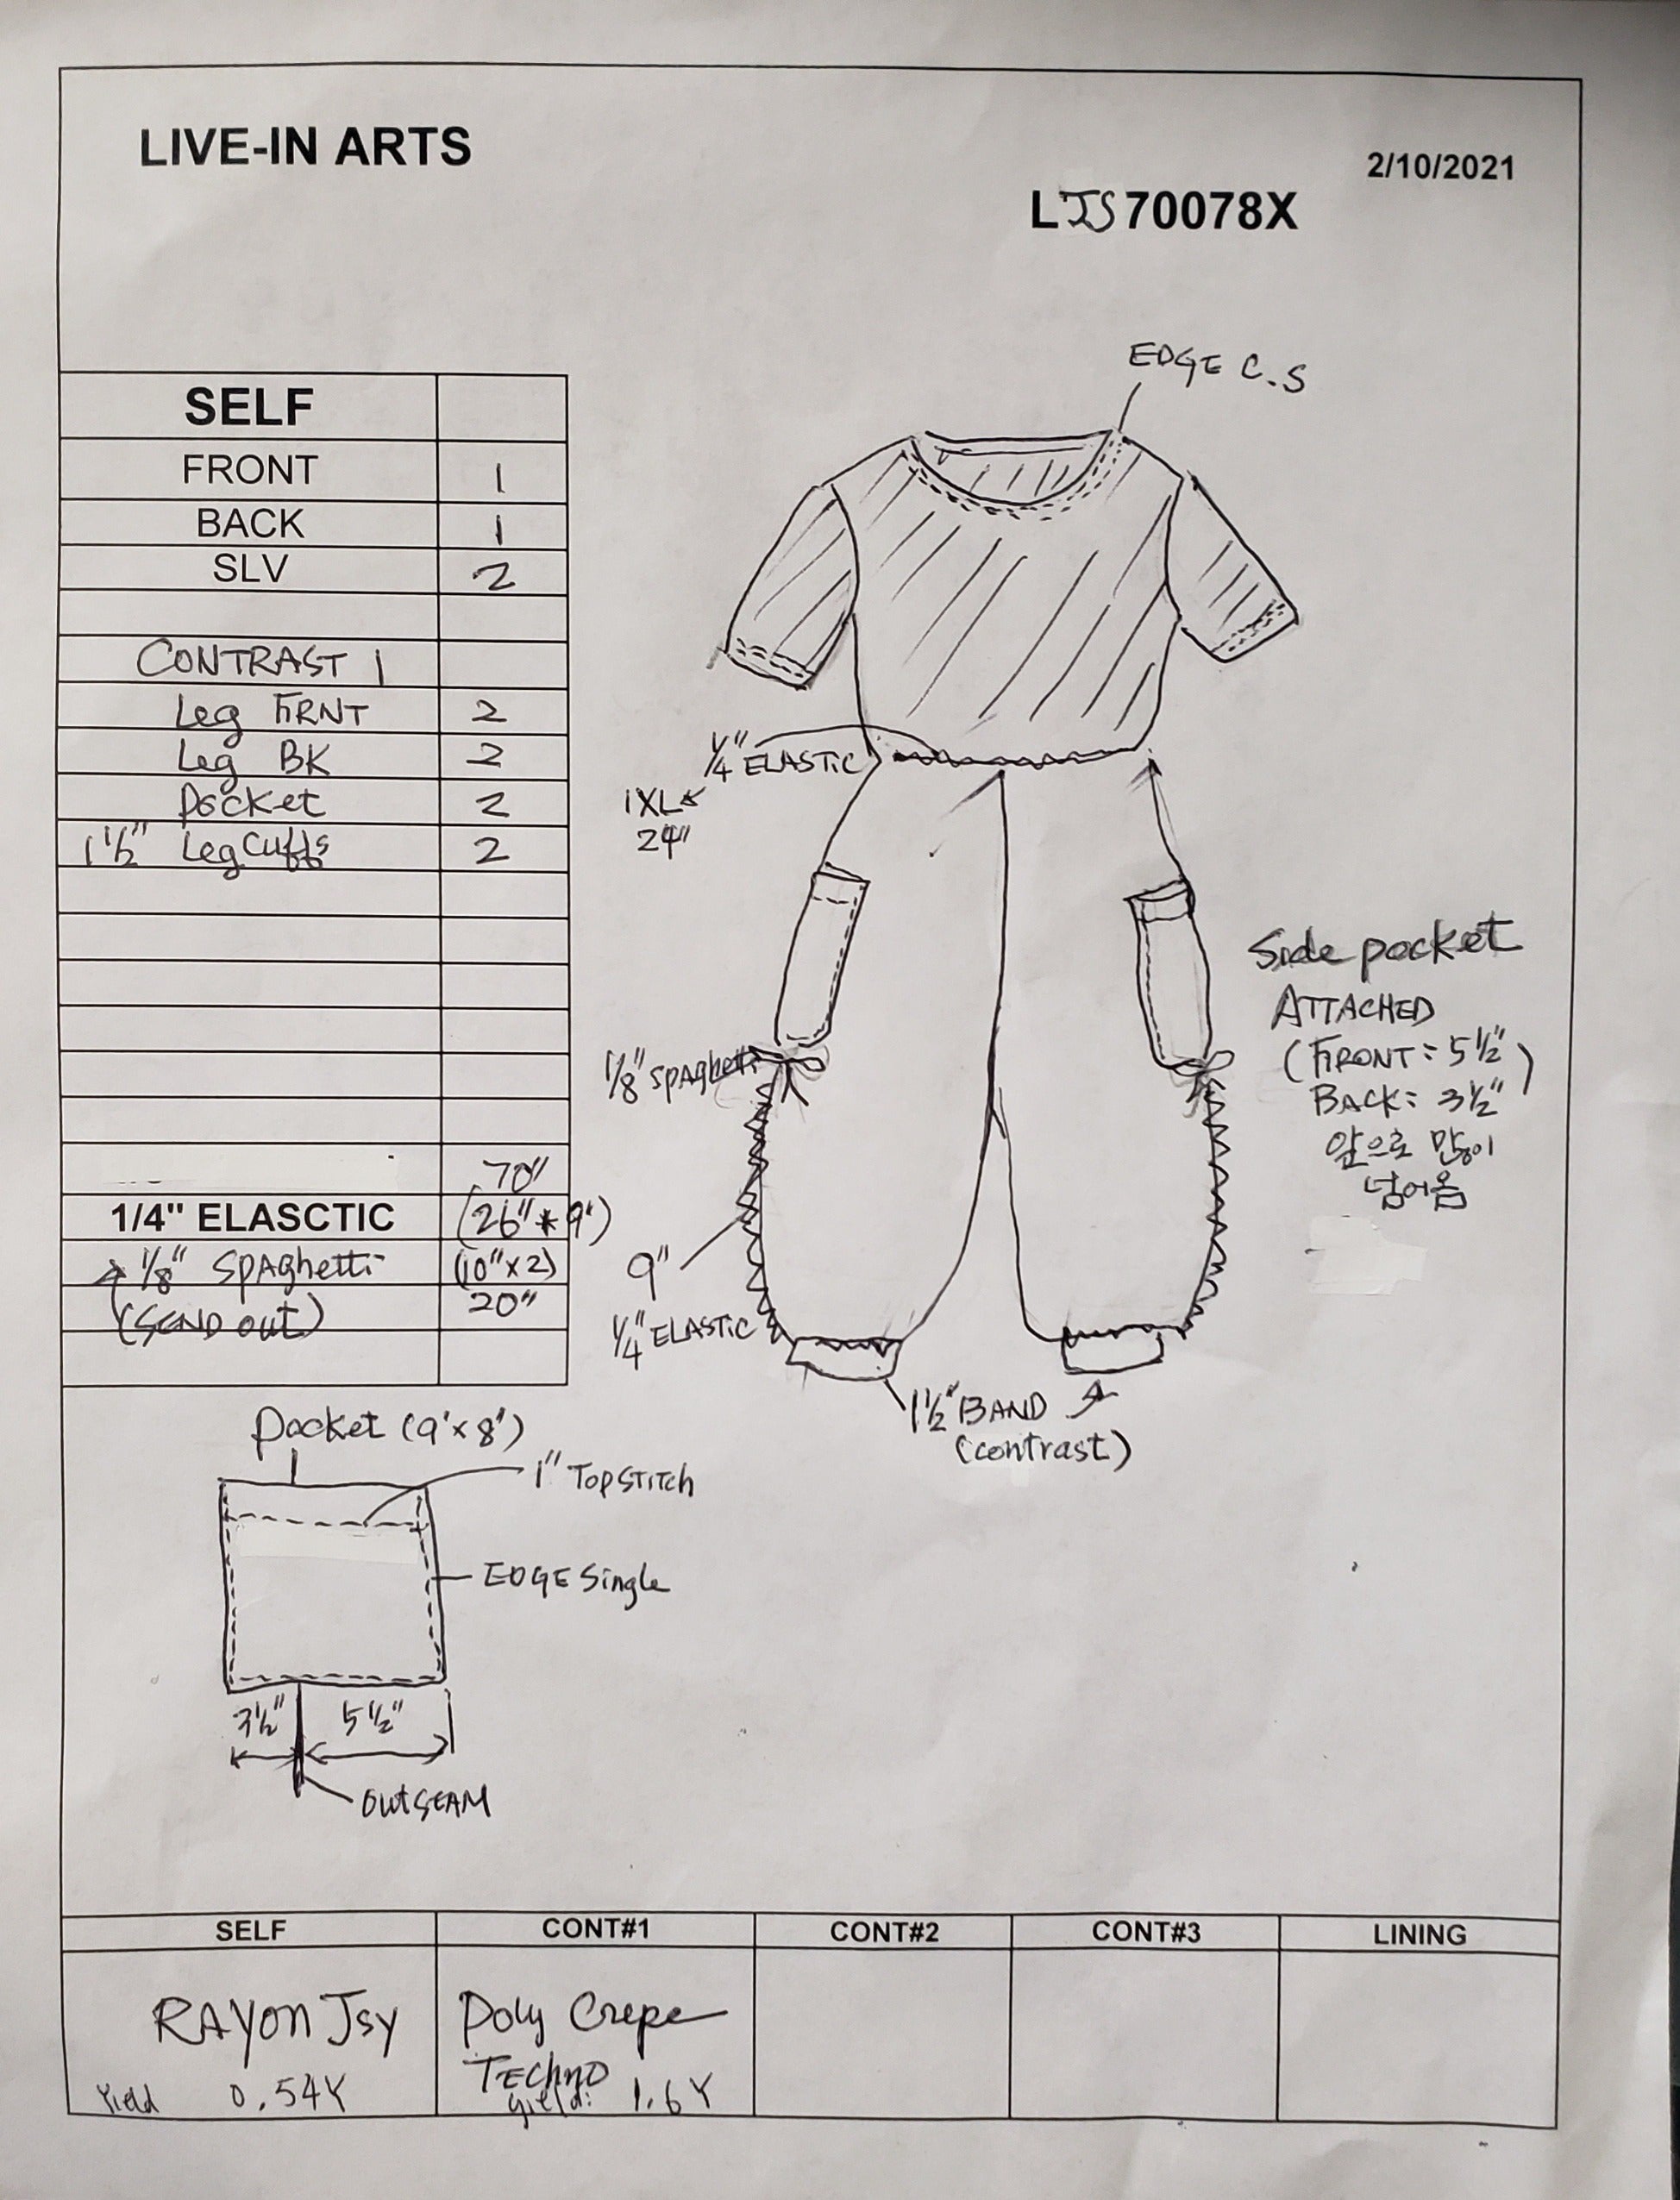 LIVE-IN ARTS
2/10/2021
LJS70078X
SELF
FRONT 1
BACK 1
SLV 2
CONTRAST 1
Leg FRNT 2
Leg BK 2
Pocket 2
1 1/2" Leg Cuffs 2
70"
1/4" ELASCTIC (26" * 9")
1/8" SPAghetti (10" x 2)
(SEND out) 20"
EDGE C.S
1/4" ELASTIC
1XL
24"
1/8" SPAghetti
Side pocket
ATTACHED
(FRONT: 5 1/2"
BACK: 3 1/2")
앞으로 많이
넘어옴
9"
1/4" ELASTIC
1 1/2" BAND
(contrast)
Pocket (9" x 8")
1" TOPSTITCH
EDGE Single
3 1/2" 5 1/2"
OUTSEAM
SELF CONT#1 CONT#2 CONT#3 LINING
RAYON JSY
Yield 0.54Y
Poly Crepe
TECHNO
yield: 1.6Y